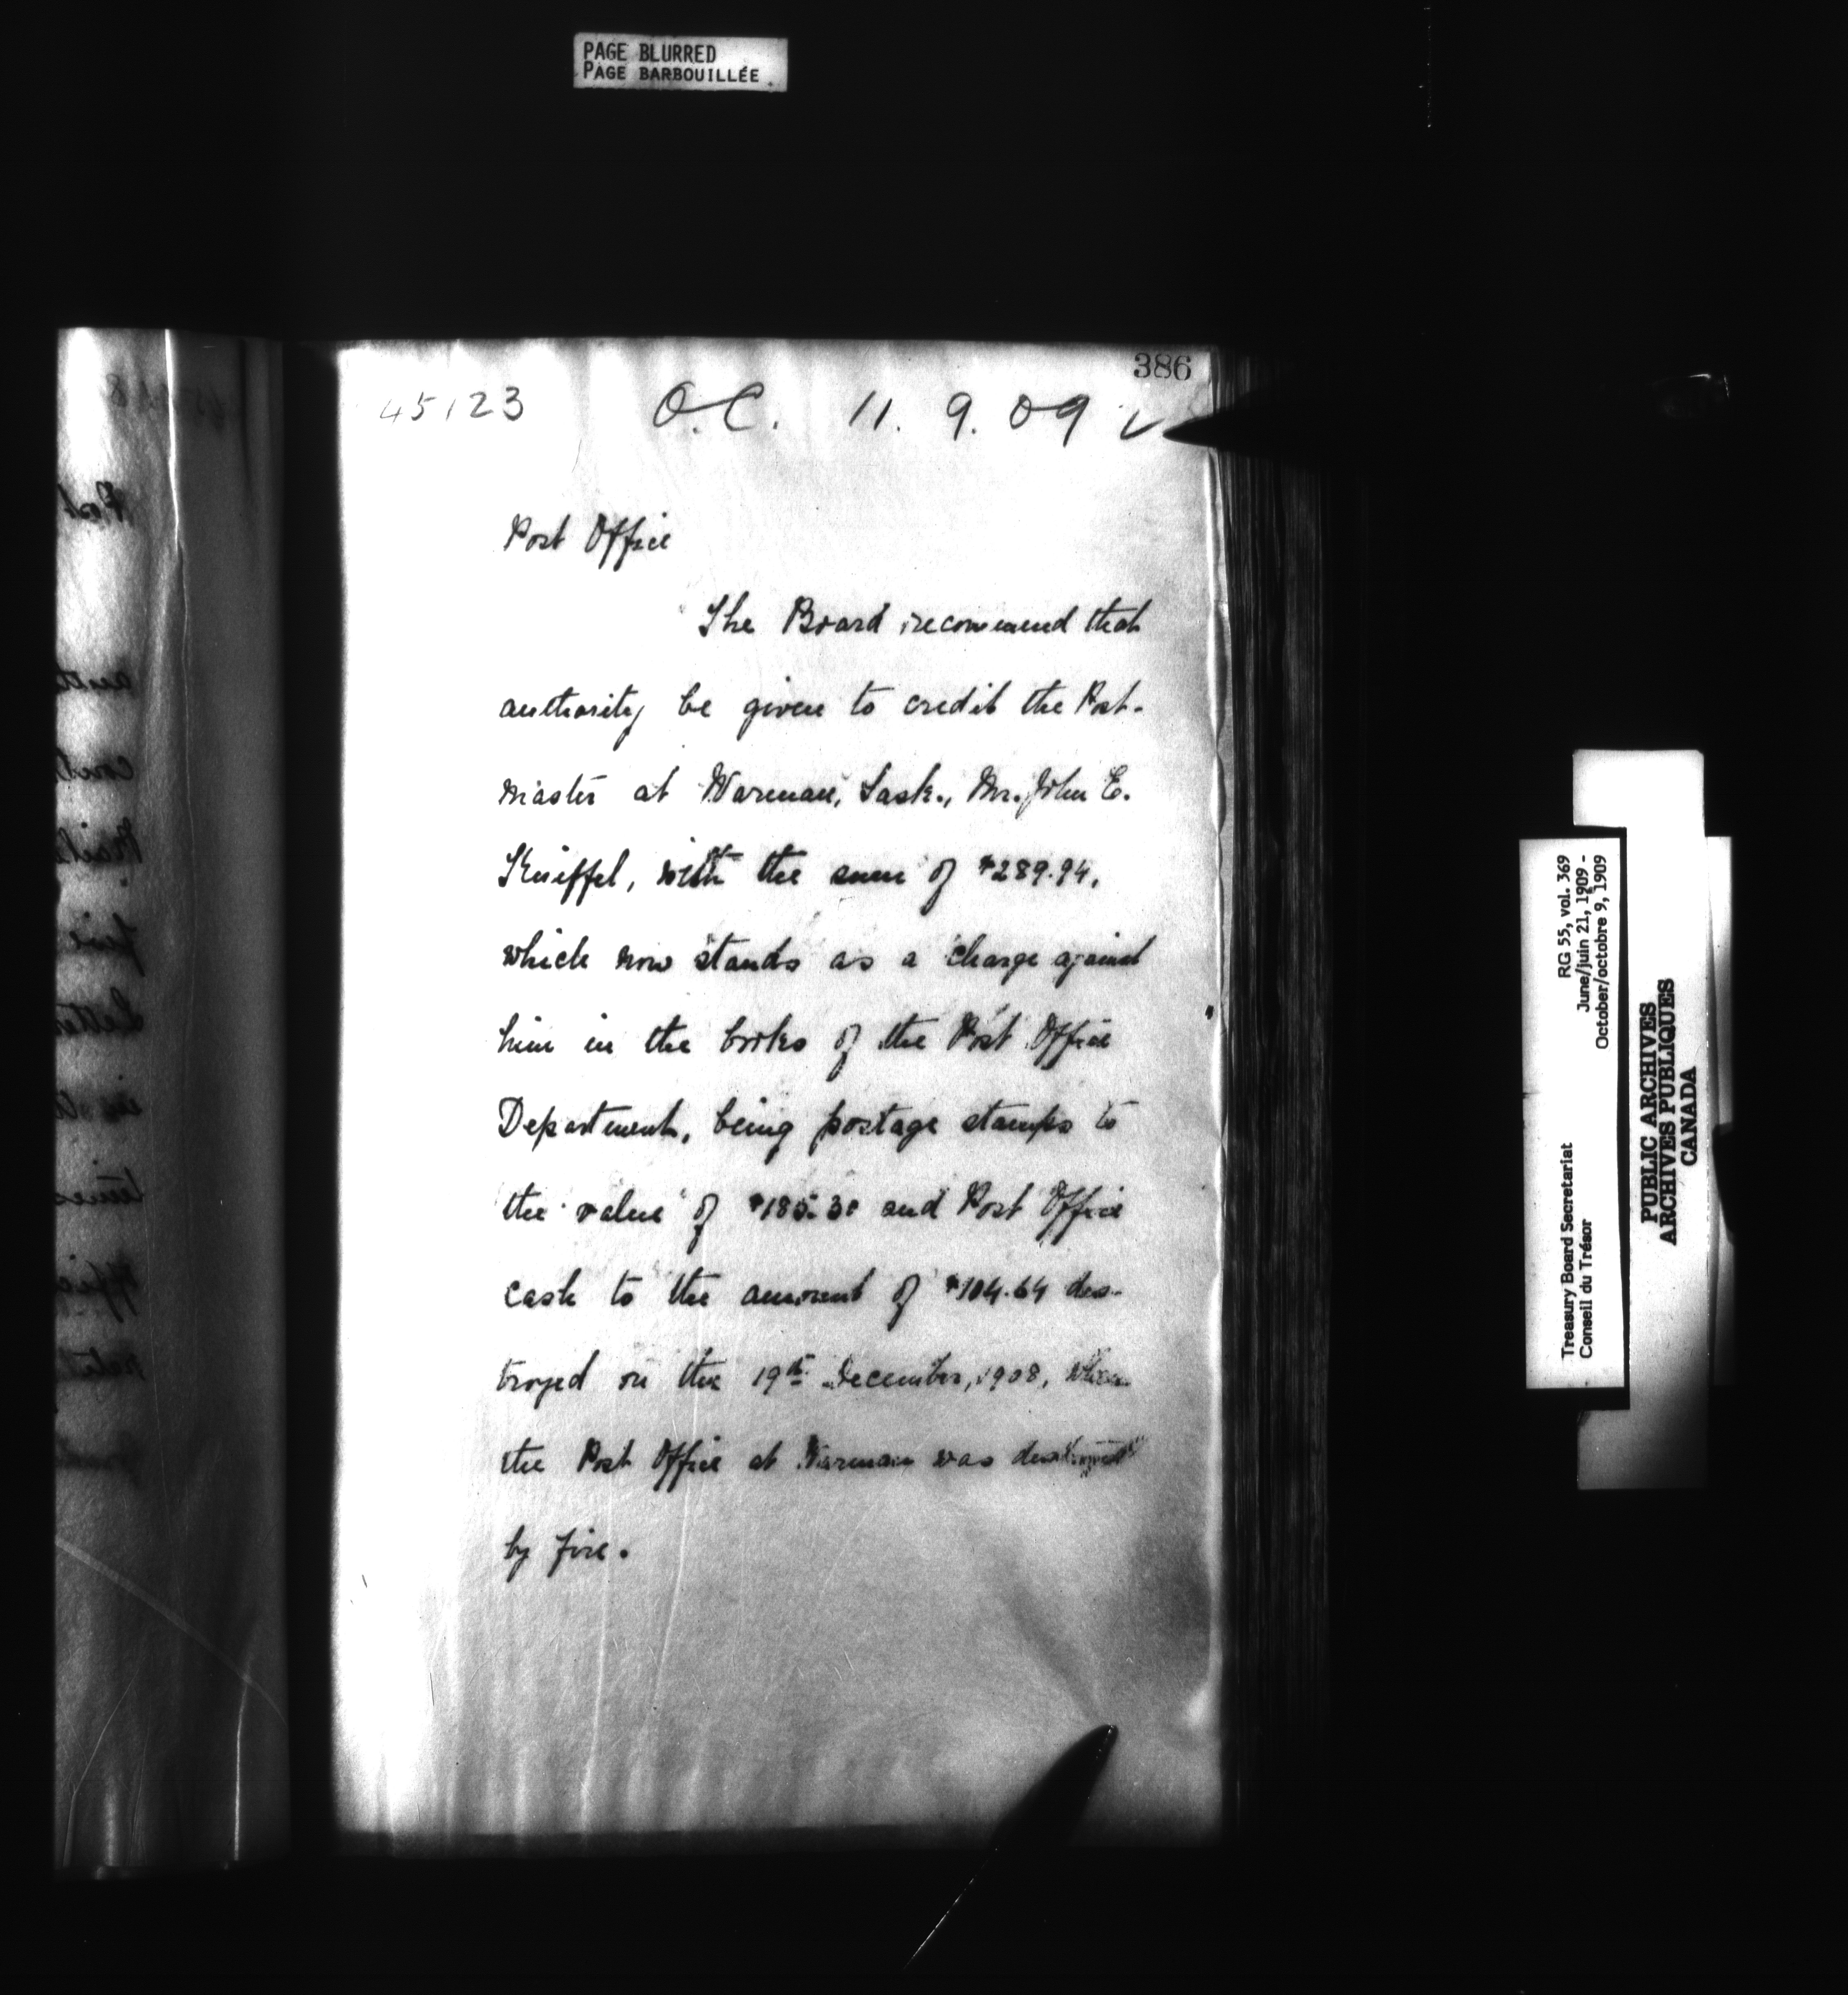 PAGE BLURRED
PAGE BARBOUILLÉE
386
45123 O.C. 11. 9. 09
Post Office
The Board recommend that
authority be given to credit the Post-
master at Warman, Sask., Mr. John E.
Kneiffel, with the sum of $289.94,
which now stands as a charge against
him in the books of the Post Office
Department, being postage stamps to
the value of $185.30 and Post Office
cash to the amount of $104.64 des-
troyed on the 19th December, 1908, when
the Post Office at Warman was destroyed
by fire.
RG 55, vol. 369
June/juin 21, 1909 -
October/octobre 9, 1909
Treasury Board Secretariat
Conseil du Trésor
PUBLIC ARCHIVES
ARCHIVES PUBLIQUES
CANADA